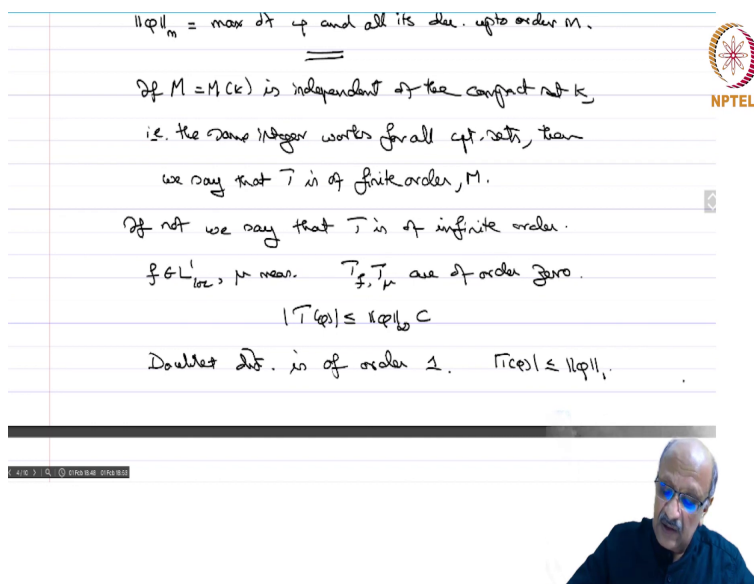 ||φ||_m = max of φ and all its der. upto order m.
If M = M(K) is independent of the compact set K,
i.e. the same integer works for all cpt. sets, then
we say that T is of finite order, M.
If not we say that T is of infinite order.
f ∈ L¹_loc, μ meas. T_f, T_μ are of order zero.
|T(φ)| ≤ ||φ||_∞ C
Doublet dist. is of order 1. |T(φ)| ≤ ||φ||₁.
NPTEL
4/10 01 Feb 18:48 01 Feb 18:53